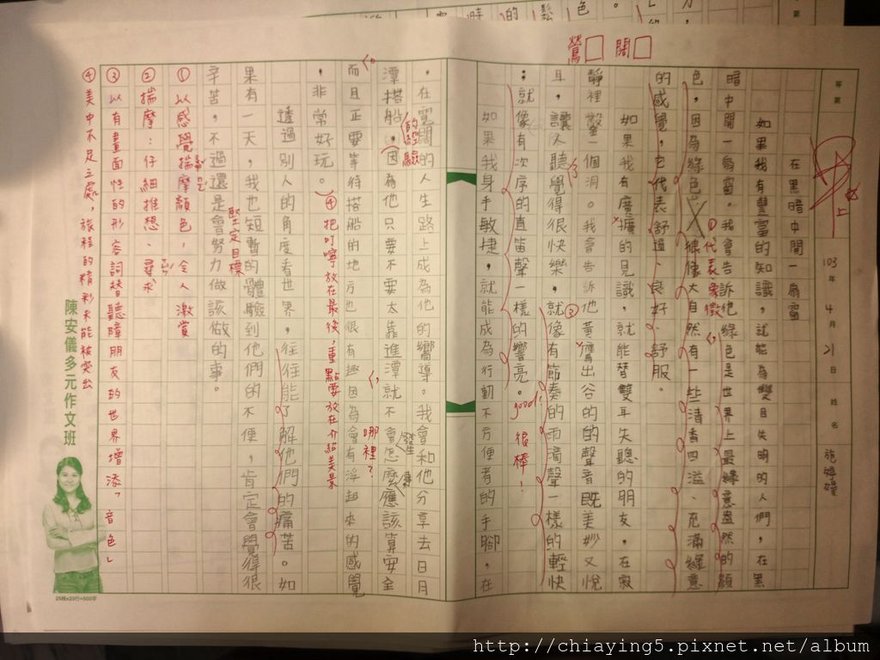 103年4月21日 姓名
在黑暗中開一扇窗
如果我有豐富的知識，就能為雙目失明的人們，在黑
暗中開一扇窗。我會告訴他綠色是世界上最綠意盎然的顏
色，因為綠色 像大自然有一些清香四溢、充滿綠意
的感覺，它代表舒適、良好、舒服。
如果我有廣擴的見識，就能替雙耳失聽的朋友，在寂
靜裡鑿一個洞。我會告訴他黃鶯出谷的的聲音既美妙又悅
耳，讓人聽覺得很快樂，就像有節奏的雨滴聲一樣的輕快
；就像有次序的直笛聲一樣的響亮。
如果我身手敏捷，就能成為行動不方便者的手腳，在
，在寬闊的人生路上成為他的嚮導。我會和他分享去日月
潭搭船，因為他只要不要太靠進潭就不會怎麼應該算安全
而且正要等待搭船的地方也很有趣因為會有浮起來的感覺
，非常好玩。
透過別人的角度看世界，往往能了解他們的痛苦。如
果有一天，我也短暫的體驗到他們的不便，肯定會覺得很
辛苦，不過還是會努力做該做的事。
鶯 闊
①代表象徵
②
good！很棒！
的經驗
發生
哪裡？
④把叮嚀放在最後，重點要放在介紹美景
堅定目標
①以感覺揣摩顏色，令人激賞
②揣摩：仔細推想、尋求
③以有畫面性的形容詞替聽障朋友的世界增添「音色」
④美中不足之處，旅程的精彩未能被突出
陳安儀多元作文班
25格×20行=500字
http://chiaying5.pixnet.net/album